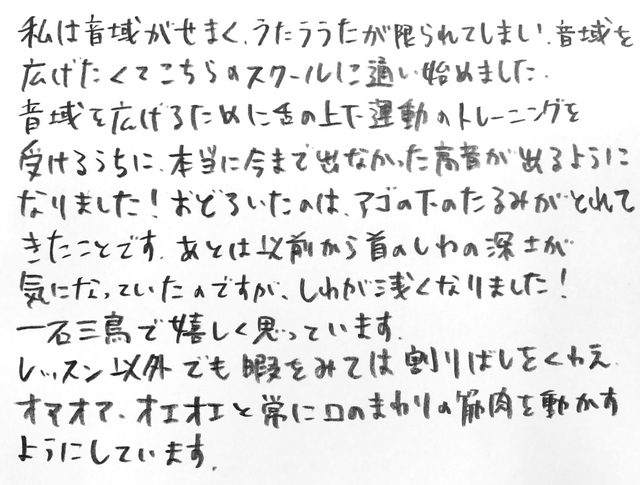 私は音域がせまく、うたううたが限られてしまい、音域を
広げたくてこちらのスクールに通い始めました。
音域を広げるために舌の上下運動のトレーニングを
受けるうちに、本当に今まで出なかった高音が出るように
なりました！おどろいたのは、アゴの下のたるみがとれて
きたことです。あとは以前から首のしわの深さが
気になっていたのですが、しわが浅くなりました！
一石三鳥で嬉しく思っています。
レッスン以外でも暇をみては割りばしをくわえ、
オアオア、オエオエと常に口のまわりの筋肉を動かす
ようにしています。